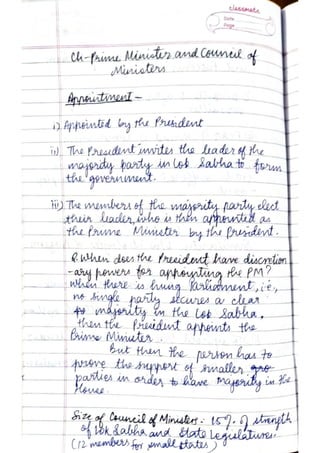 classmate
Date
Page
Ch-Prime Minister and Council of
Ministers
Appointment -
i) Appointed by the President
ii) The President invites the leader of the
majority party in Lok Sabha to form
the government.
iii) The members of the majority party elect
their leader, who is then appointed as
the Prime Minister by the President.
Q. When does the President have discretion
-ary powers for appointing the PM?
When there is hung Parliament, i.e.,
no single party secures a clear
majority in the Lok Sabha,
then the President appoints the
Prime Minister.
But then the person has to
prove the support of smaller
parties in order to have Majority in the
House.
Size of Council of Ministers - 15% of strength
of Lok Sabha and State Legislatures.
(12 members for small states)